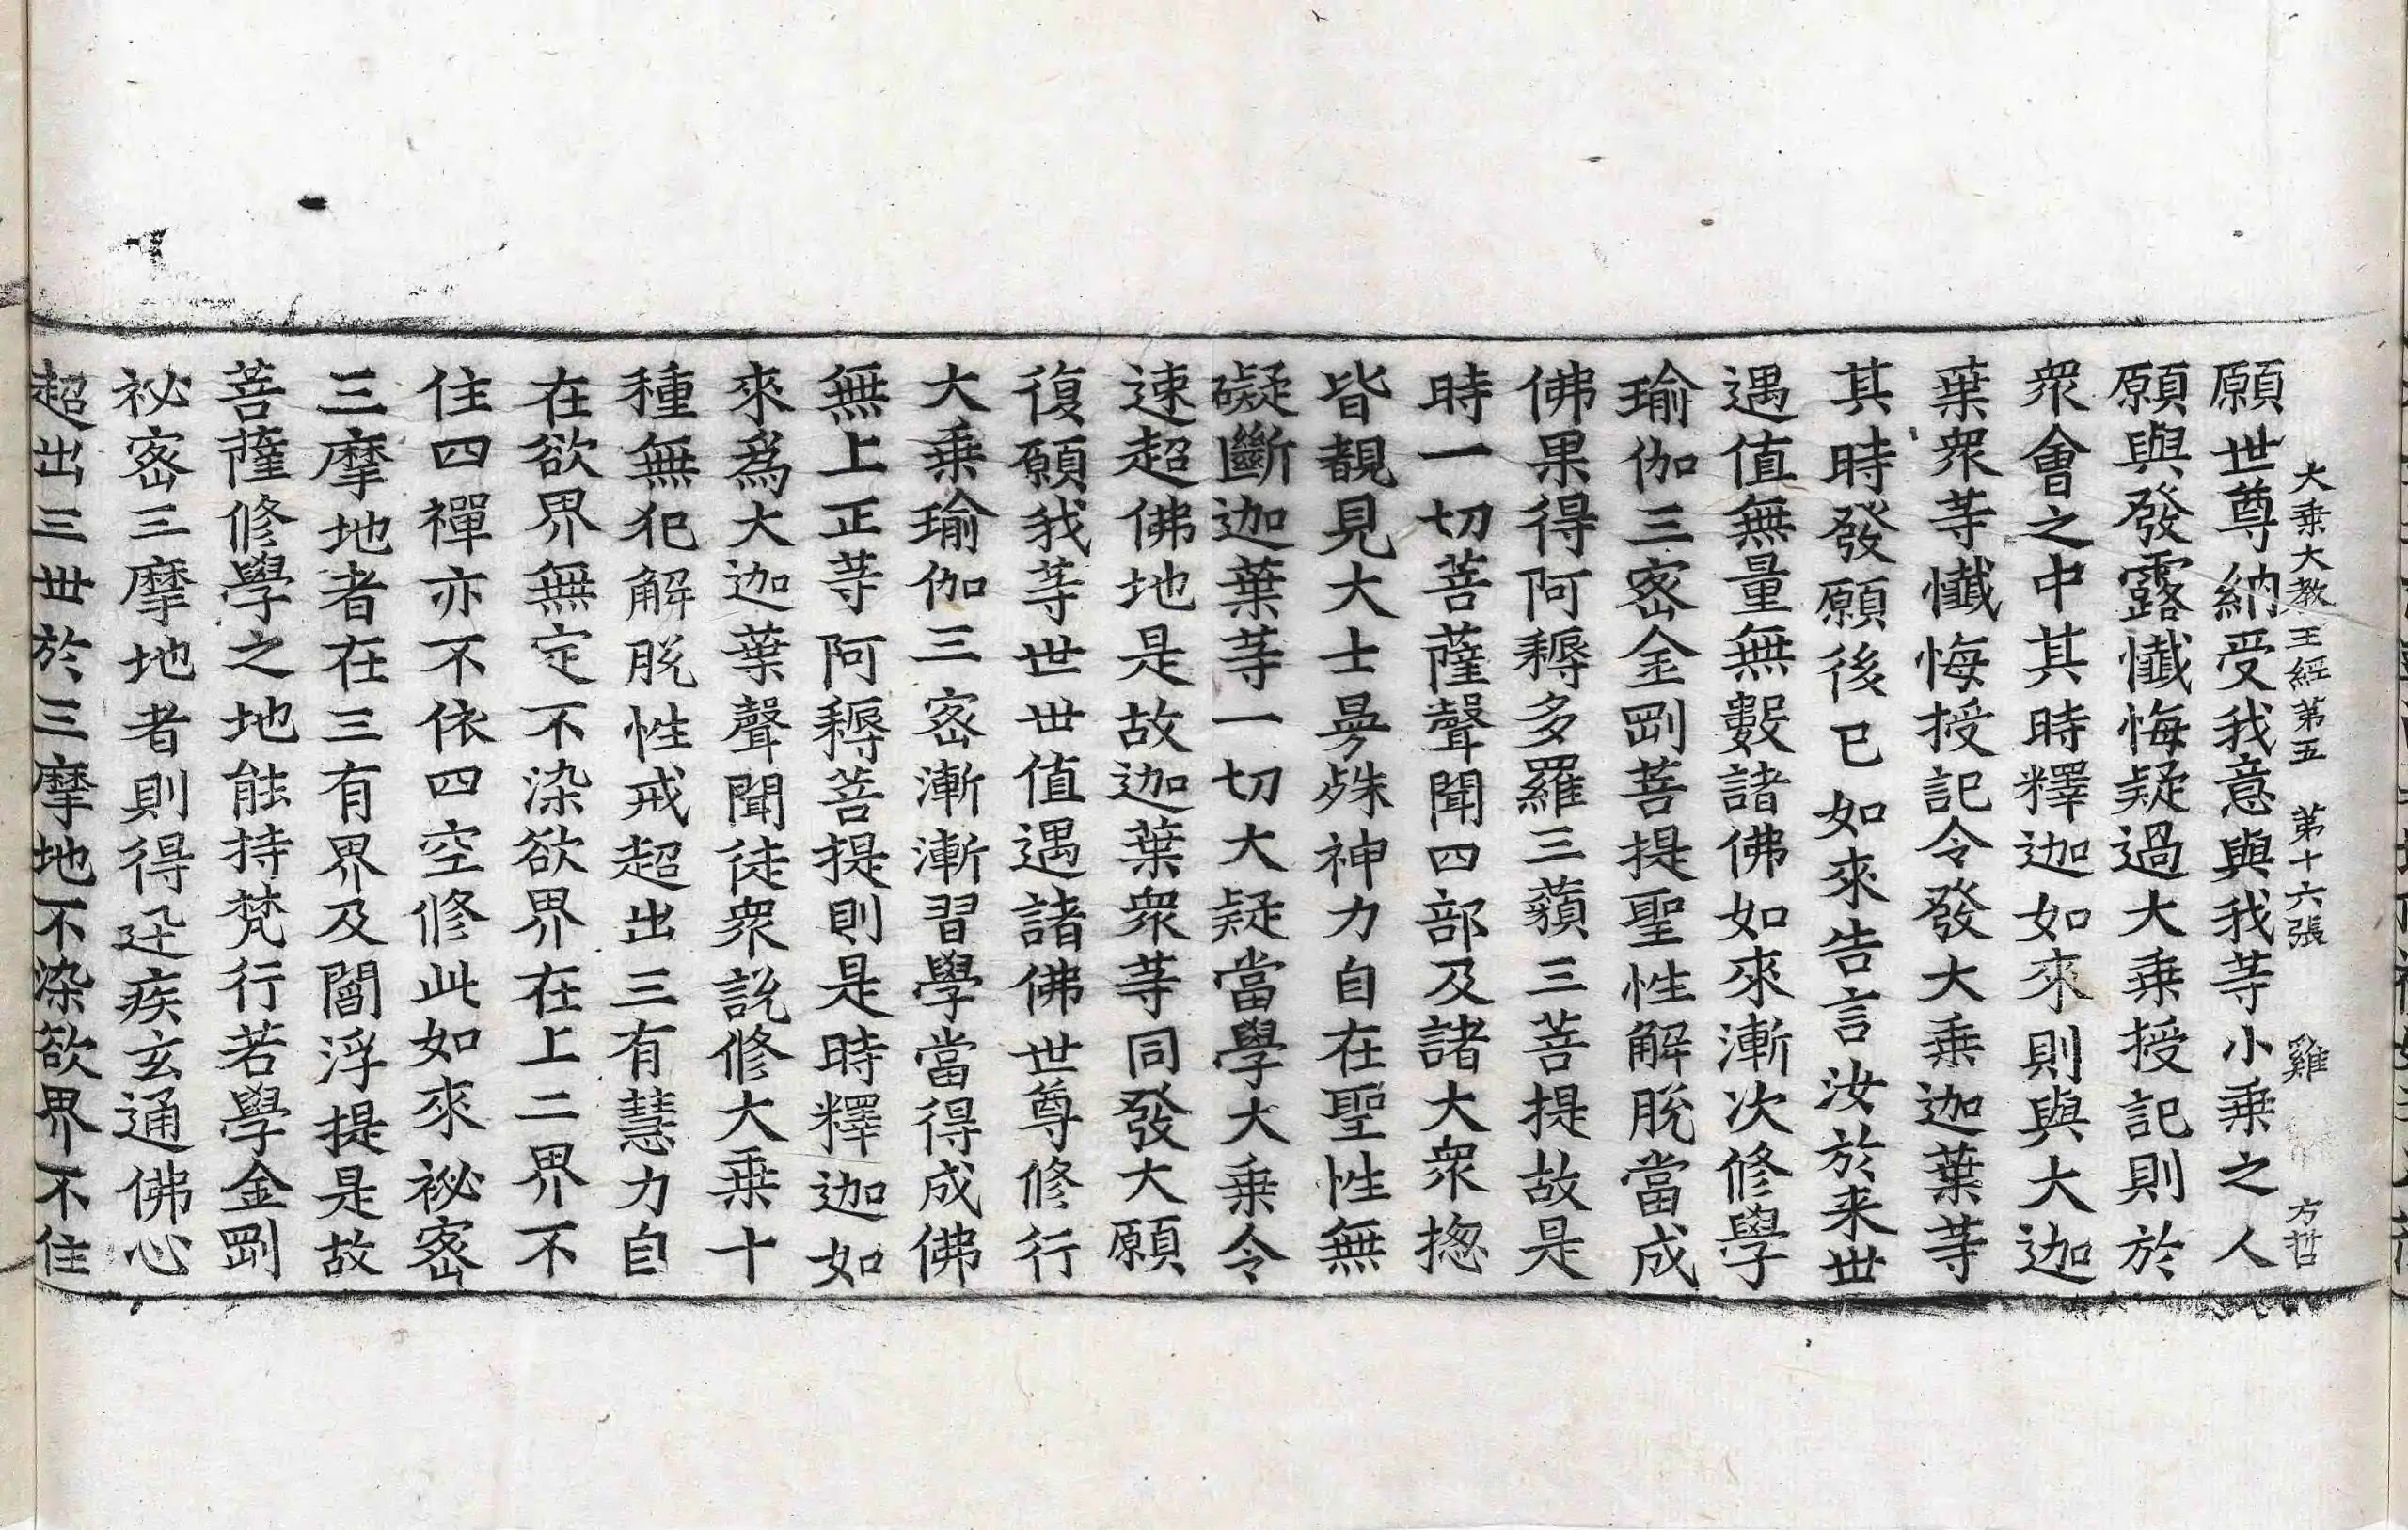 大乗大教王經第五　第十六張　雞　方哲
願世尊納受我意與我䓁小乗之人
願與發露懺悔疑過大乗授記則於
衆會之中其時釋迦如來則與大迦
葉衆䓁懺悔授記令發大乗迦葉䓁
其時發願後已如來告言汝於来世
遇值無量無數諸佛如來漸次修學
瑜伽三密金剛菩提聖性解脫當成
佛果得阿耨多羅三藐三菩提故是
時一切菩薩聲聞四部及諸大衆揔
皆覩見大士㬅殊神力自在聖性無
礙斷迦葉䓁一切大疑當學大乗令
速超佛地是故迦葉衆䓁同發大願
復願我䓁世世值遇諸佛世尊修行
大乗瑜伽三密漸漸習學當得成佛
無上正䓁阿耨菩提則是時釋迦如
來爲大迦葉聲聞徒衆說修大乗十
種無犯解脫性戒超出三有慧力自
在欲界無定不染欲界在上二界不
住四禪亦不依四空修此如來祕密
三摩地者在三有界及閻浮提是故
菩薩修學之地能持梵行若學金剛
祕密三摩地者則得迅疾玄通佛心
超出三世於三摩地不染欲界不住